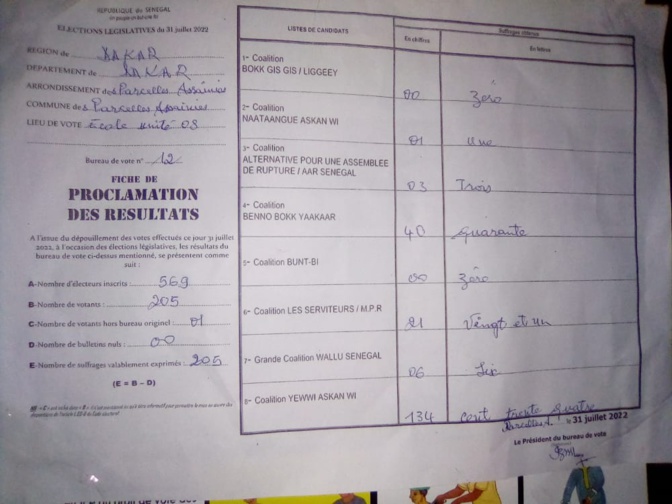 REPUBLIQUE DU SENEGAL
Un peuple un but une foi
ELECTIONS LEGISLATIVES du 31 juillet 2022
REGION de DAKAR
DEPARTEMENT de DAKAR
ARRONDISSEMENT des Parcelles Assainies
COMMUNE des Parcelles Assainies
LIEU DE VOTE Ecole unité 08
Bureau de vote n° 12
FICHE DE
PROCLAMATION
DES RESULTATS
A l'issue du dépouillement des votes effectués ce jour 31 juillet
2022, à l'occasion des élections législatives, les résultats du
bureau de vote ci-dessus mentionné, se présentent comme
suit :
A-Nombre d'électeurs inscrits : 569
B-Nombre de votants : 205
C-Nombre de votants hors bureau originel : 01
D-Nombre de bulletins nuls : 00
E-Nombre de suffrages valablement exprimés : 205
(E = B – D)
LISTES DE CANDIDATS
Suffrages obtenus
En chiffres
En lettres
1- Coalition
BOKK GIS GIS / LIGGEEY
00 Zéro
2- Coalition
NAATAANGUE ASKAN WI
01 une
3- Coalition
ALTERNATIVE POUR UNE ASSEMBLEE
DE RUPTURE / AAR SENEGAL
03 Trois
4- Coalition
BENNO BOKK YAAKAAR
40 quarante
5- Coalition BUNT-BI
00 Zéro
6- Coalition LES SERVITEURS / M.P.R
21 Vingt et un
7- Grande Coalition WALLU SENEGAL
06 Six
8- Coalition YEWWI ASKAN WI
134 cent trente quatre
le 31 juillet 2022
Le Président du bureau de vote